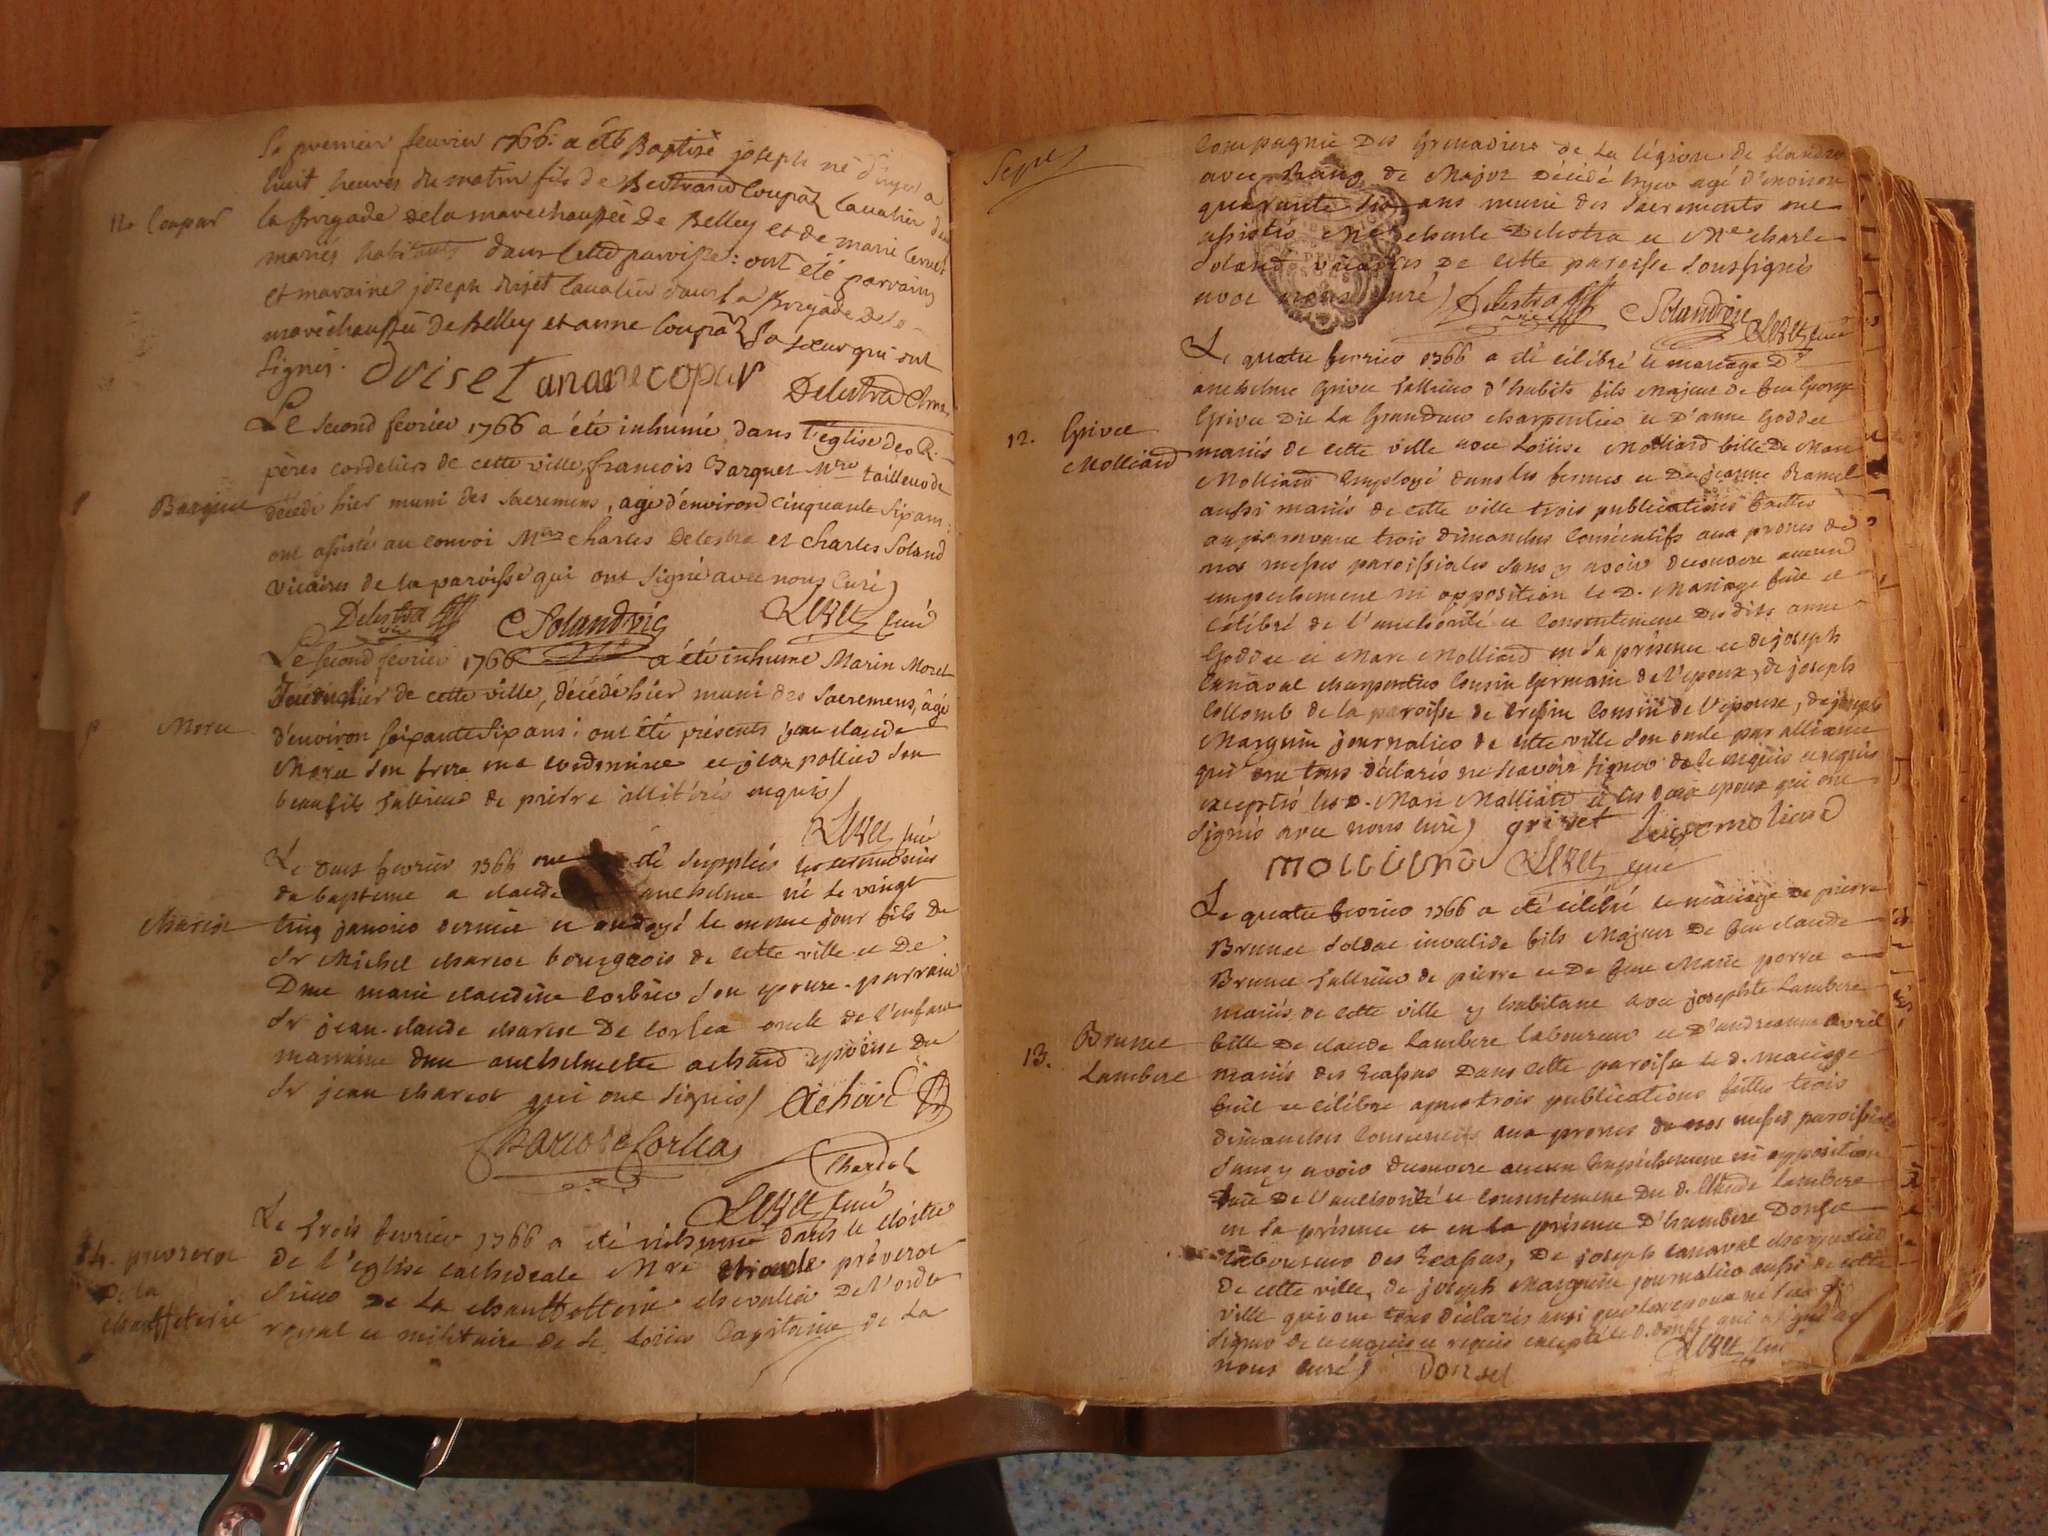 Le premier fevrier 1766 a été Baptisé joseph né d'hyer a
huit heures du matin fils de Bertrand Coupat Cavalier dans
12 Coupat
la Brigade de la marechaussée de Belley et de marie
mariés habitants dans cette paroisse: ont été parrain
et maraine joseph Cavalier dans la Brigade de la
marechaussée de Belley et anne Coupat sa soeur qui ont
signés. anne copar
Delestra
Le second fevrier 1766 a été inhumé dans l'église des R.
pères cordeliers de cette ville françois Barquet Mre tailleur de
8 Barquet
décédé hier muni des sacremens, agé d'environ cinquante six ans:
ont assisté au convoi Mres Charles Delestra et Charles Soland
vicaires de la paroisse qui ont signé avec nous Curé
Delestra vic C Soland vic curé
Le second fevrier 1766 a été inhumé Marin Moret
de cette ville, décédé hier muni des Sacremens, âgé
9 Moret
d'environ soixante six ans: ont été présents jean claude
Moret son frere me cordonnier et jean pollier son
beaufils tallieur de pierre illitérés enquis
curé
Le deux fevrier 1766 ont été supplées les ceremonies
de bapteme a claude anthelme né le vingt
Charcot
cinq janvier dernier et ondoyé le meme jour fils de
Sr Michel charcot bourgeois de cette ville et De
Dme marie claudine Corbier son epouse. parrain
Sr jean-claude charcot de Corlea oncle de l'enfant
marraine dme anthelmette achard epouse du
Sr jean charcot qui ont signés Achard
Charcot de Corlea
Charcot
curé
Le trois fevrier 1766 a été inhumé dans le cloître
14. preverot
de l'église cathedrale Mre claude préverot
De la
Sieur de La chauffetterie chevalier De l'ordre
chauffeterie
royal et militaire de St Loüis Capitaine de La
Sept
Compagnie Des Grenadiers de La légion de flandre
avec Rang de Major Décédé hyer agé d'environ
quarante ans muni des Sacrements ont
assistés Mre charle Delestra et Mre charle
Soland vicaires De cette paroisse Soussignés
avec nous curé Delestra vic C Soland vic
curé
Le quatre fevrier 1766 a été célébré le mariage D'
anthelme Grivet tallieur d'habits fils Majeur de feu George
Grivet Dit La Grandeur charpentier et D'anne Goddet
12. Grivet
Molliard
mariés de cette ville avec Loüise Molliard fille De Marc
Molliard Employé dans les fermes et De jeanne Ramel
aussi mariés de cette ville trois publications faittes
auparavant trois dimanches Consécutifs aux prones de
nos messes paroissiales sans y avoir decouvert aucun
empechement ni opposition le D. Mariage fait et
célébré de l'authorité et Consentement Desdits anne
Goddet et Marc Molliard en la présence et de joseph
Canaval charpentier Cousin Germain de l'epoux, de joseph
Collomb de la paroisse de Cousin de l'epouse, de joseph
Marguin journalier de cette ville son oncle par alliance
qui ont tous déclarés ne scavoir signer de ce enquis et requis
exceptés les D. Marc Molliard et les deux epoux qui ont
signés avec nous curé grivet
curé
Le quatre fevrier 1766 a été célébré le mariage De pierre
Brunet soldat invalide fils Majeur De feu claude
Brunet tallieur de pierre et De feue Marie porret
mariés de cette ville y habitant avec josephte Lambert
Brunet
fille De claude Lambert laboureur et D'andreanne avril
13.
Lambert
mariés des Ecassas Dans cette paroisse le d. mariage
fait et célébré apres trois publications faittes trois
dimanches Consecutifs aux prones de nos messes paroissiales
sans y avoir decouvert aucun Empechement ni opposition
De l'authorité et consentement Du d. Claude Lambert
en la présence et en la présence D'humbert Donset
laboureur des Ecassas, De joseph Canaval charpentier
De cette ville, de joseph Marguin journalier aussi de cette
ville qui ont tous déclarés ainsi que les epoux ne
signer de ce enquis et requis excepté le d. donset qui a signé avec
nous curé Donset curé